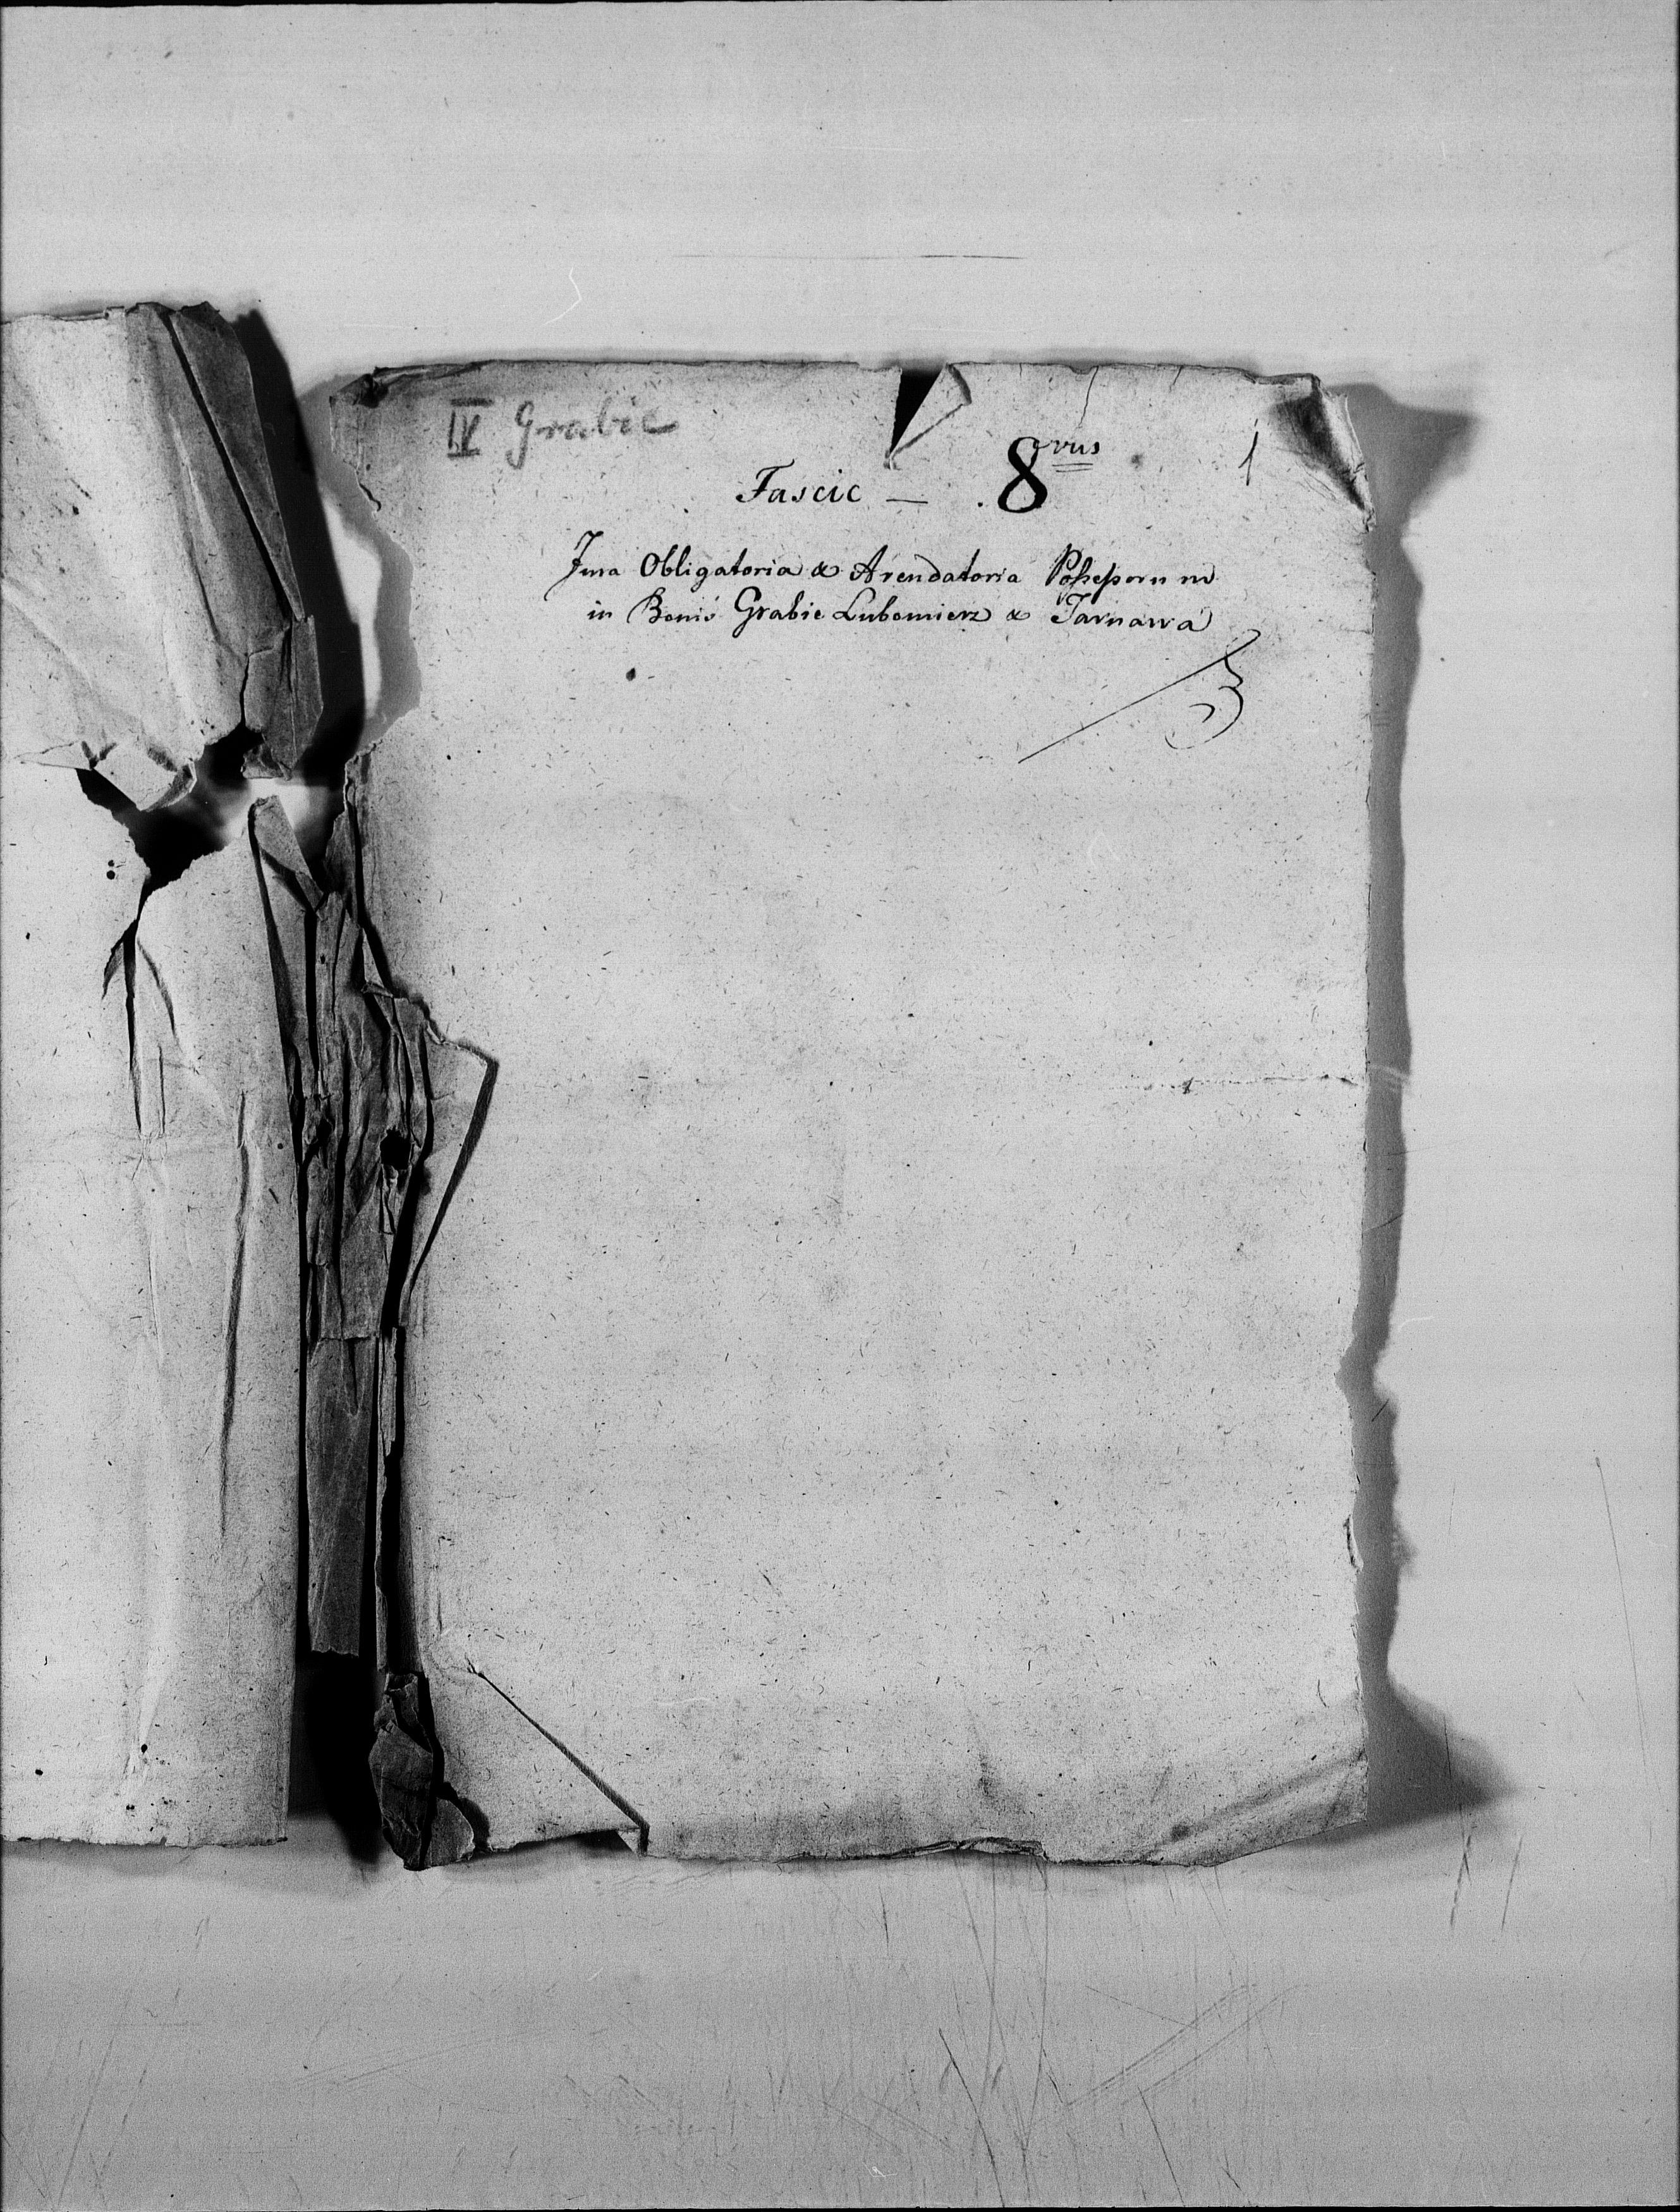 IV Grabie
1
Fascic — 8vus
Jura Obligatoria & Arendatoria Possessorum
in Bonis Grabie Lubomierz & Tarnawa